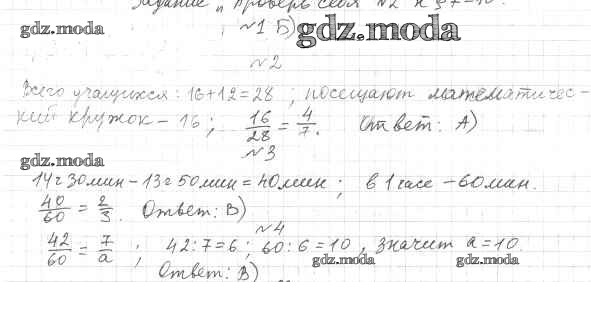 Задание „Проверь себя №2 к §7-10.
gdz.moda №1 Б) gdz.moda
№2
Всего учащихся: 16+12=28 ; посещают математичес-
кий кружок - 16 ; 16/28 = 4/7. Ответ: А)
№3
gdz.moda
14 ч 30 мин - 13 ч 50 мин = 40 мин ; в 1 часе - 60 мин.
40/60 = 2/3. Ответ: В)
№4
42/60 = 7/a ; 42:7=6 ; 60:6=10 , значит a=10.
gdz.moda gdz.moda
Ответ: В)